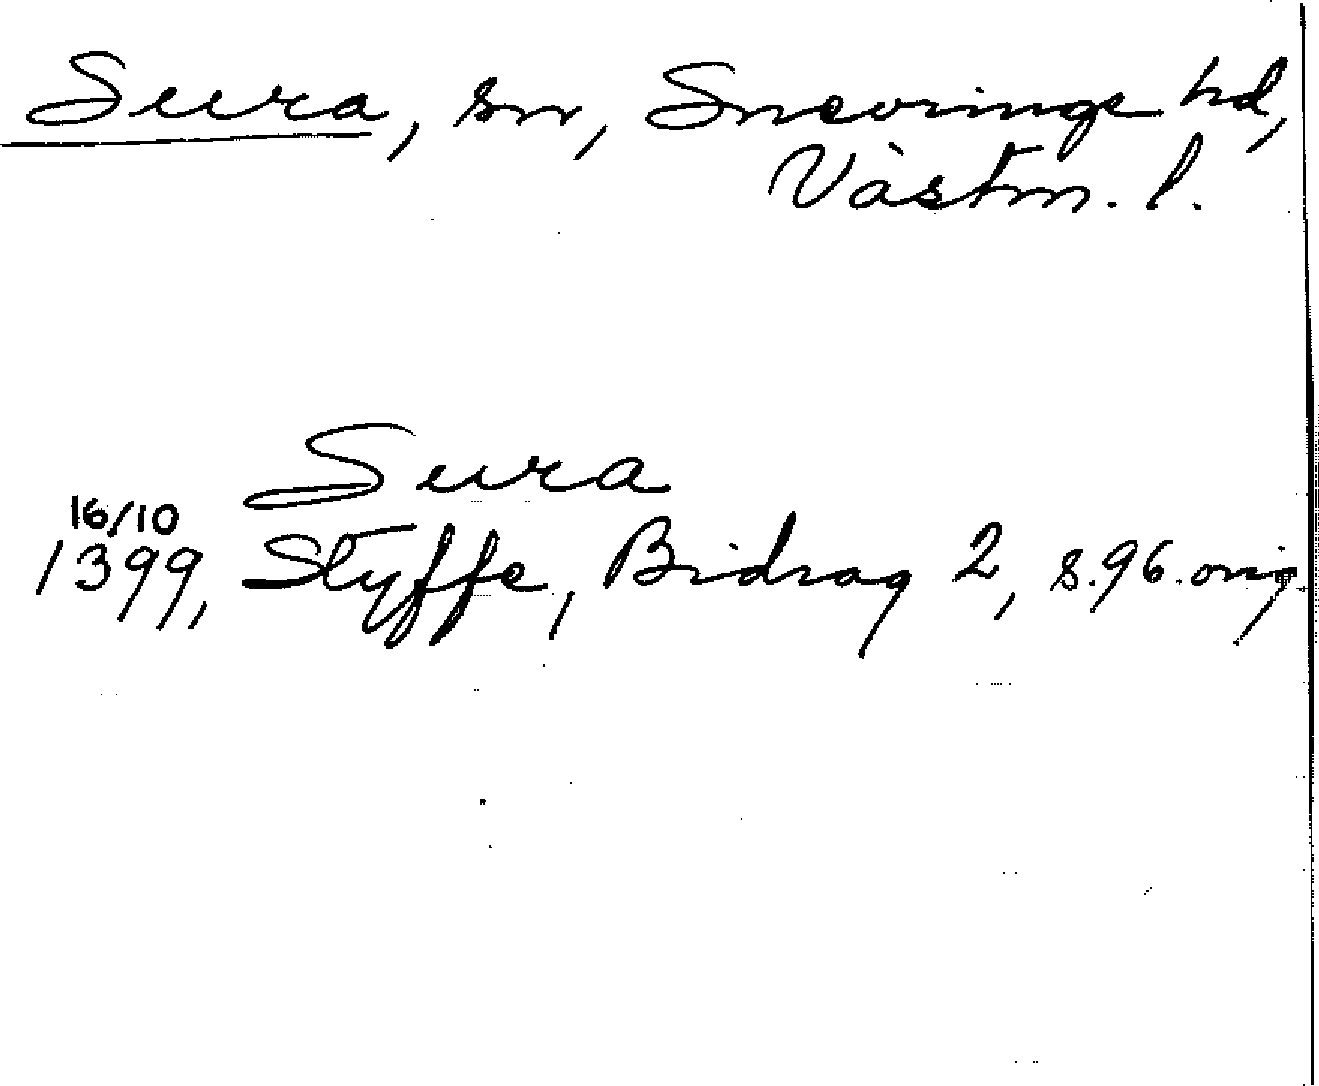 Sura, sn, Snevringe hd,
Västm. l.
Sura
16/10
1399, Styffe, Bidrag 2, s. 96. orig.